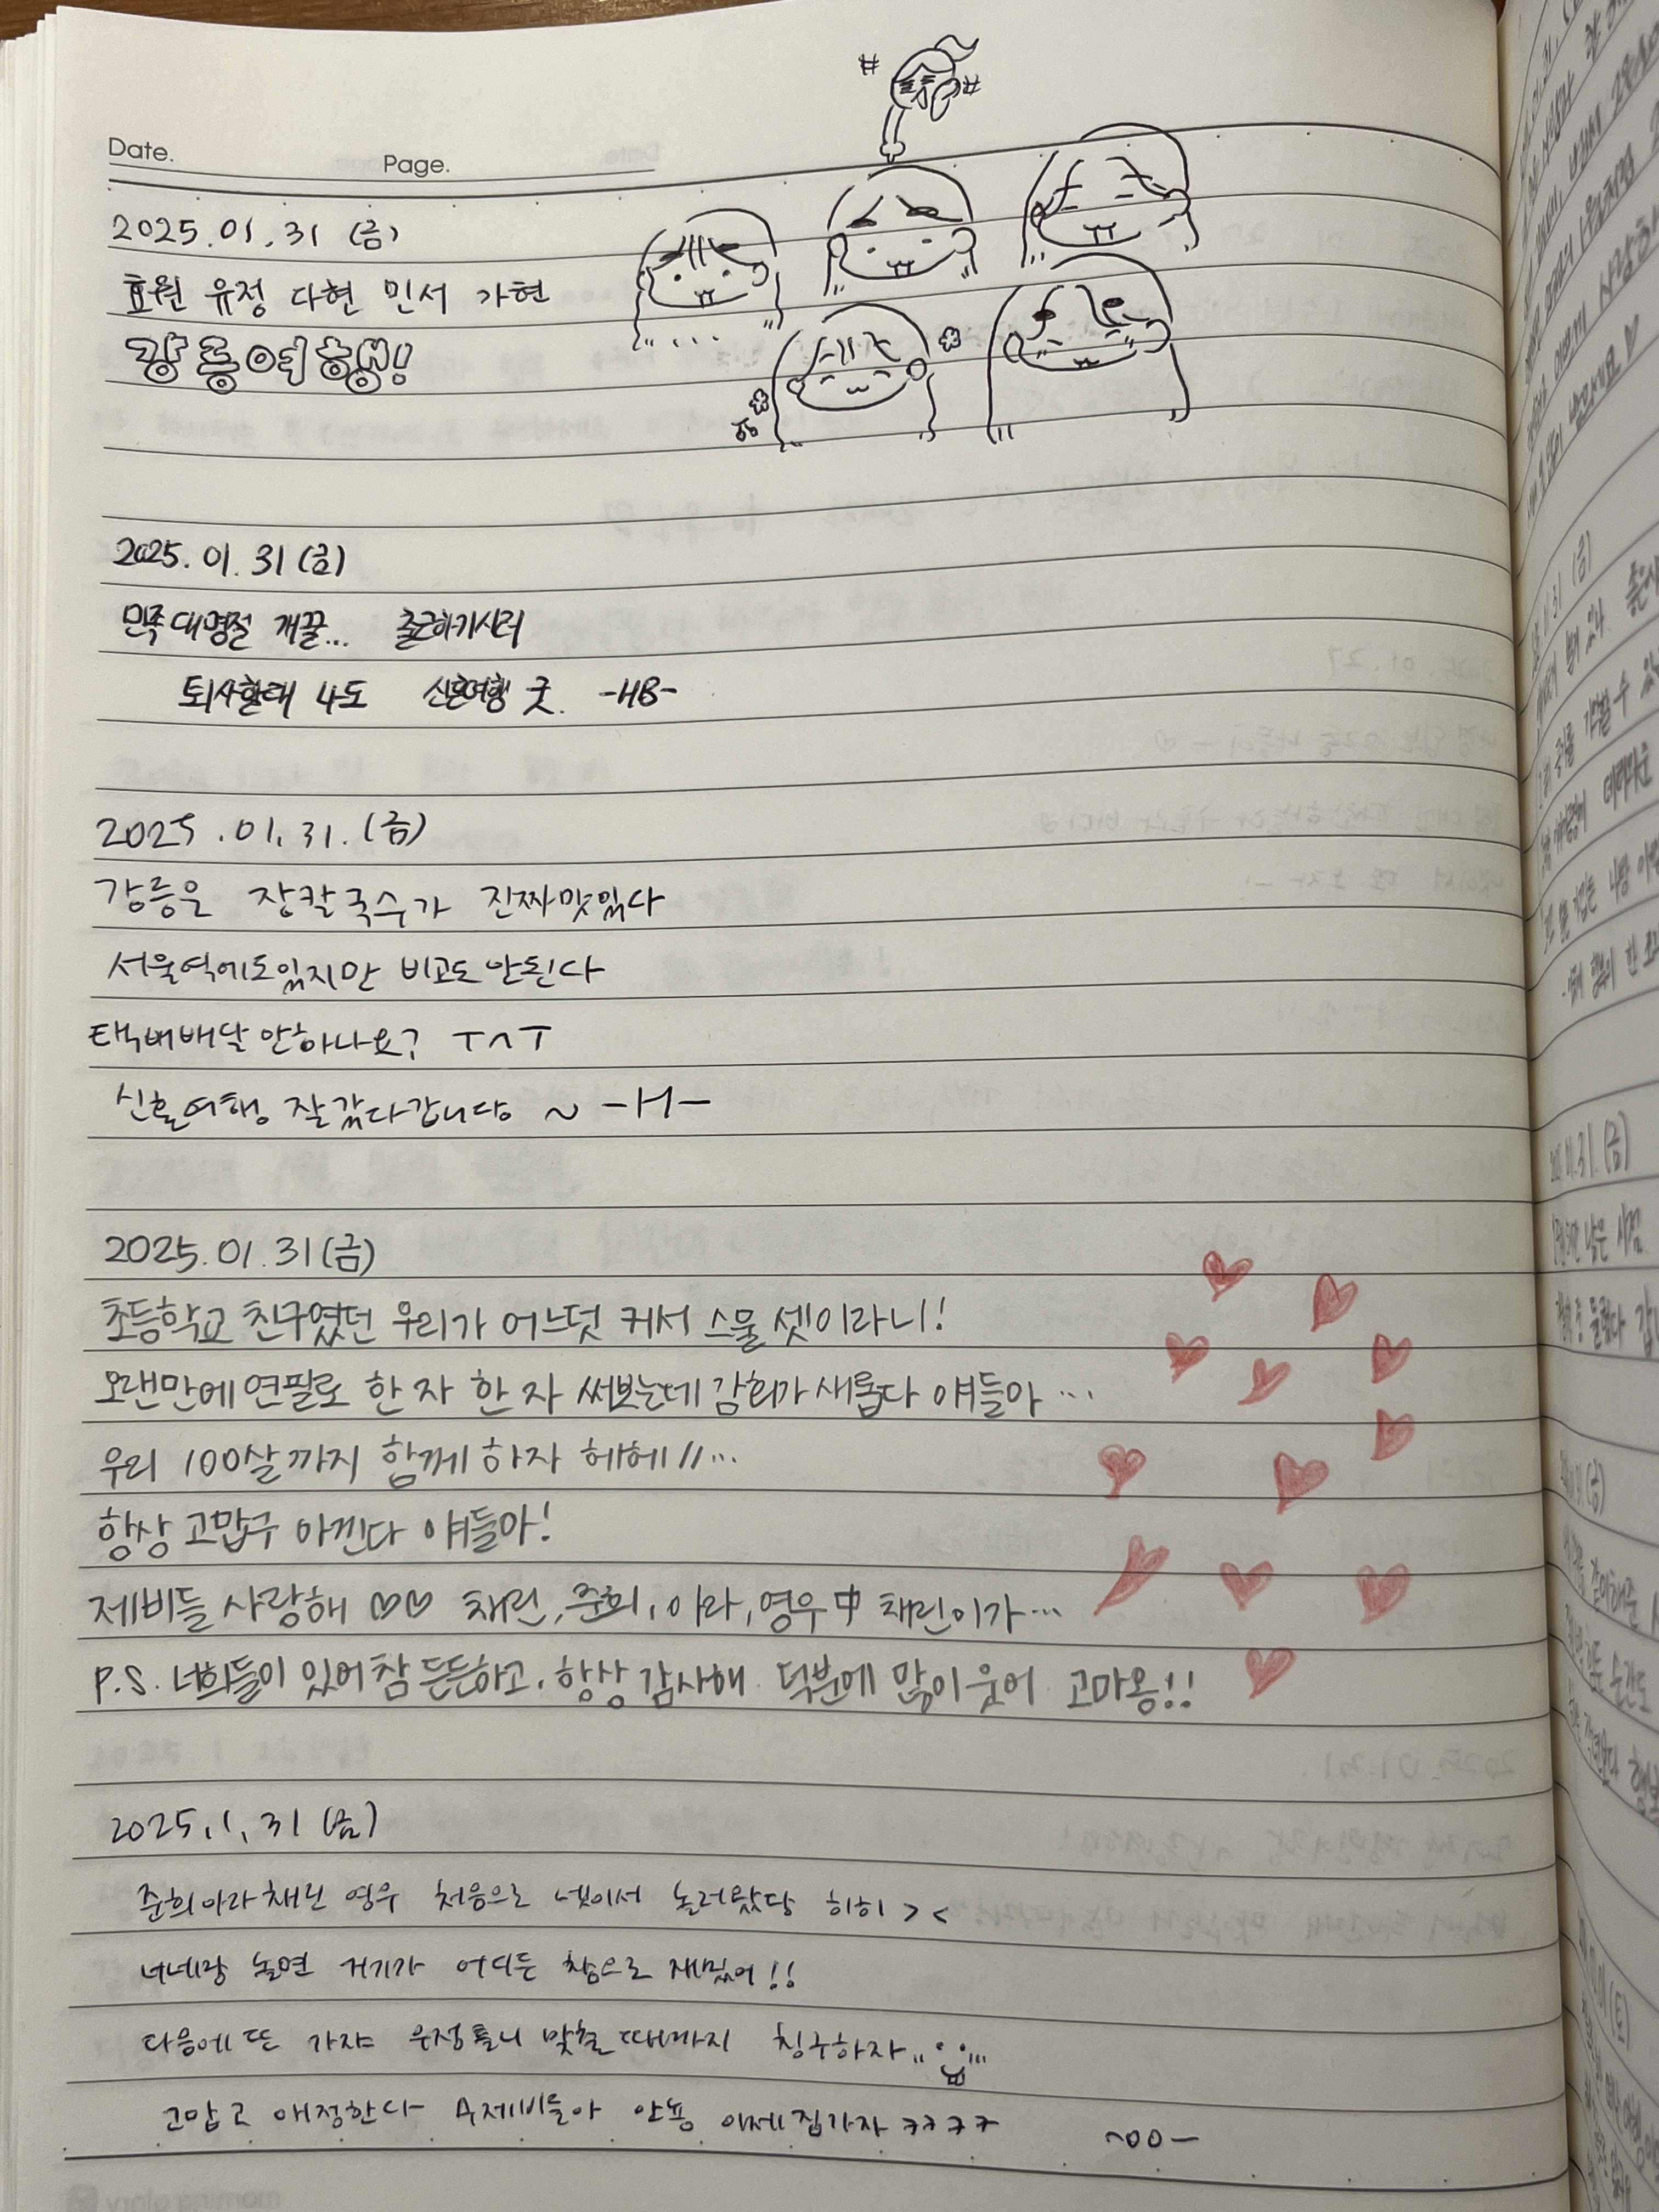 Date.
Page.
2025.01.31 (금)
효원 유정 다현 민서 가현
강릉여행!
2025.01.31(금)
민족대명절 개꿀... 출근하기시러
퇴사할래 나도 신혼여행 굿. -HB-
2025.01.31.(금)
강릉은 장칼국수가 진짜맛있다
서울역에도있지만 비교도안된다
택배배달 안하나요? ㅜㅅㅜ
신혼여행 잘갔다갑니다 ~ -H-
2025.01.31(금)
초등학교 친구였던 우리가 어느덧 커서 스물셋이라니!
오랜만에 연필로 한 자 한 자 써보는데 감회가 새롭다 얘들아 ...
우리 100살까지 함께 하자 헤헤 //...
항상 고맙구 아낀다 얘들아!
제비들 사랑해 ♡♡ 채린, 준희, 아라, 영우 中 채린이가...
P.S. 너희들이 있어 참 든든하고, 항상 감사해. 덕분에 많이 웃어 고마옹!!
2025.1.31 (금)
준희아라채린 영우 처음으로 넷이서 놀러왔당 히히 > <
너네랑 놀면 거기가 어디든 참으로 재밌어!!
다음에 또 가쟈 우정틀니 맞출 때까지 칭구하자
고맙고 애정한다 제비들아 안뇽 이제집가자 ㅋㅋㅋㅋ
~00-
morning glory